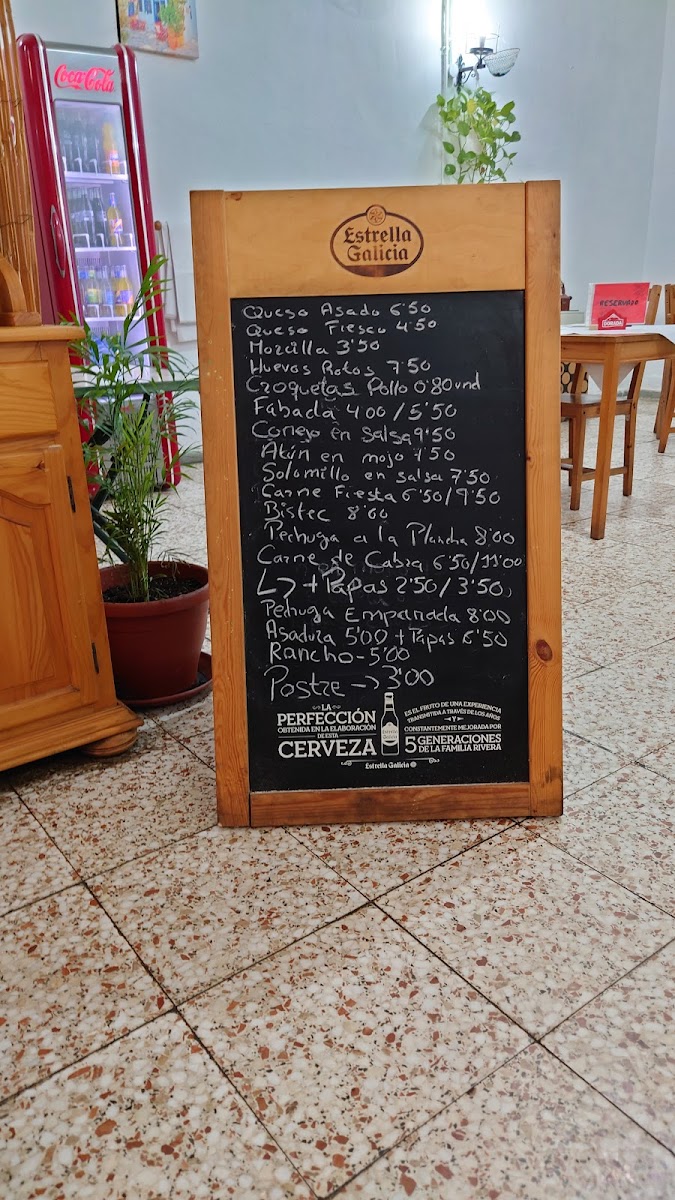 Coca-Cola
Estrella
Galicia
RESERVADO
DORADA
Queso Asado 6'50
Queso Fresco 4'50
Morcilla 3'50
Huevos Rotos 7'50
Croquetas Pollo 0'80und
Fabada 4'00/5'50
Conejo en Salsa 9'50
Atún en mojo 7'50
Solomillo en salsa 7'50
Carne Fiesta 6'50/9'50
Bistec 8'00
Pechuga a la Plancha 8'00
Carne de Cabra 6'50/11'00
↳ + Papas 2'50/3'50
Pechuga Empanada 8'00
Asadura 5'00 + Papas 6'50
Rancho - 5'00
Postre -> 3'00
LA
PERFECCIÓN
OBTENIDA EN LA ELABORACIÓN
DE ESTA
CERVEZA
ES EL FRUTO DE UNA EXPERIENCIA
TRANSMITIDA A TRAVÉS DE LOS AÑOS
Y
CONSTANTEMENTE MEJORADA POR
5 GENERACIONES
DE LA FAMILIA RIVERA
Estrella Galicia